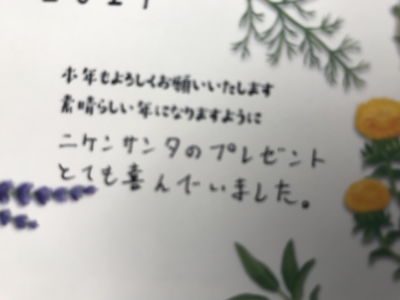 本年もよろしくお願いいたします
素晴らしい年になりますように
ニケンサンタのプレゼント
とても喜んでいました。